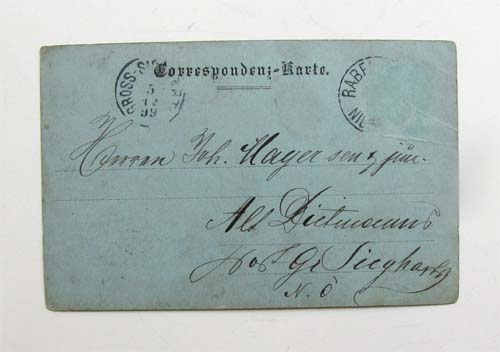 Correspondenz-Karte.
GROSS-SI
5
12
99
RABE
Herren Joh. Mayer sen & jun.
Alt Dietmanns
Post Gr Siegharts
N. Ö